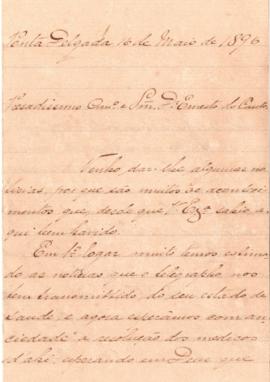 Ponta Delgada 16 de Maio de 1896
Presadissimo Exmº e Snr. Dr Ernesto do Canto
Tenho dar-lhe algumas no
ticias, por que são muitos os aconteci
mentos que, desde que V. Exª sahio a
qui tem havido.
Em 1º logar muito temos estima
do as noticias que o telegrapho nos
tem transmittido do seu estado de
saude; e agora esperamos com an
ciedade a resolução dos medicos
d'ahi, esperando em Deus que